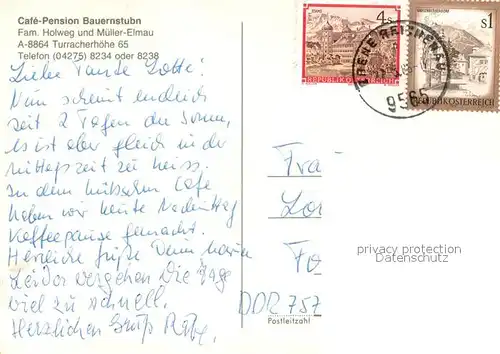 Café-Pension Bauernstubn
Fam. Holweg und Müller-Elmau
A-8864 Turracherhöhe 65
Telefon (04275) 8234 oder 8238
Liebe Tante Lotte!
Nun scheint endlich
seit 2 Tagen die Sonne,
es ist aber gleich in der
Mittagszeit zu heiss.
In dem hübschen Café
haben wir heute Nachmittag
Kaffeepause gemacht.
Herzliche Grüße Deine
Leider vergehen die Tage
viel zu schnell.
Herzlichen Gruß
4s
REPUBLIK ÖSTERREICH
S1
REPUBLIK ÖSTERREICH
EBENE REICHENAU
9565
Fra
Lo
Fo
DDR 757
Postleitzahl
privacy protection
Datenschutz